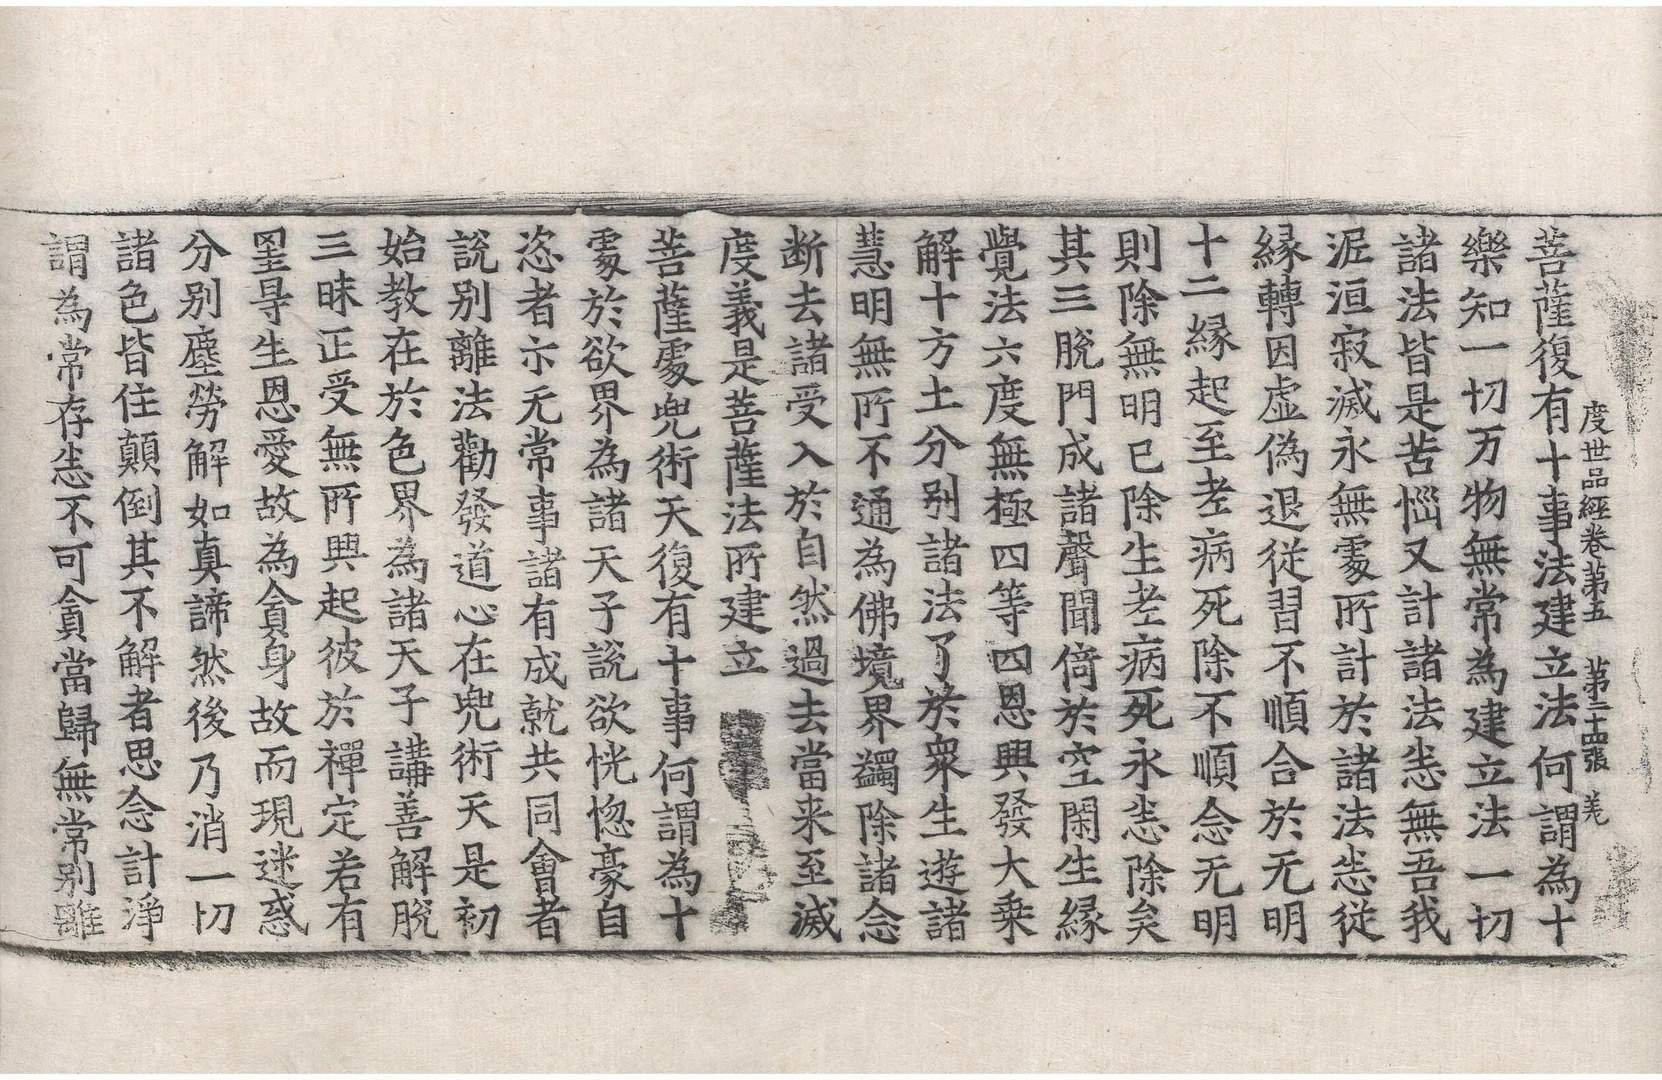 度世品經卷第五　第二十四張　羌
菩薩復有十事法建立法何謂為十
樂知一切万物無常為建立法一切
諸法皆是苦惱又計諸法恙無吾我
泥洹寂滅永無䖏所計於諸法恙從
縁轉因虛偽退従習不順合於无明
十二縁起至老病死除不順念无明
則除無明已除生老病死永恙除矣
其三脫門成諸聲聞倚於空閑生縁
覺法六度無極四等四恩興發大乗
解十方土分別諸法了於衆生遊諸
慧明無所不通為佛境界蠲除諸念
断去諸受入於自然過去當来至滅
度義是菩薩法所建立
菩薩䖏兜術天復有十事何謂為十
䖏於欲界為諸天子說欲恍惚豪自
恣者亦无常事諸有成就共同會者
說別離法勸發道心在兜術天是初
始教在於色界為諸天子講善解脫
三昧正受無所興起彼於禪定若有
罣㝵生恩愛故為貪身故而現迷惑
分別塵勞解如真諦然後乃消一切
諸色皆住顛倒其不解者思念計淨
謂為常存恙不可貪當歸無常別離